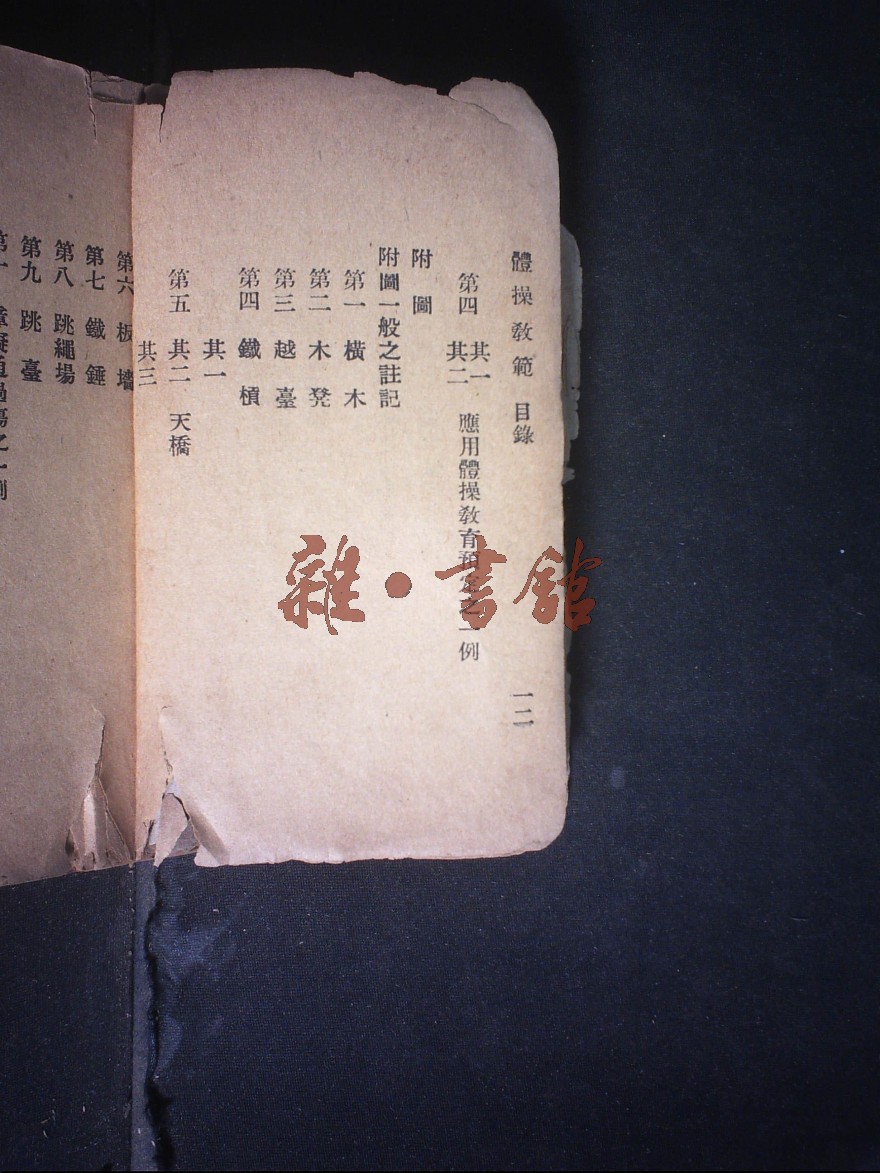 體操教範 目錄 一二
第四 其一
其二 應用體操教育預定之一例
附圖
附圖一般之註記
第一 橫木
第二 木凳
第三 越臺
第四 鐵槓
其一
第五 其二 天橋
其三
第六 板墻
第七 鐵錘
第八 跳繩場
第九 跳臺
雜·書館